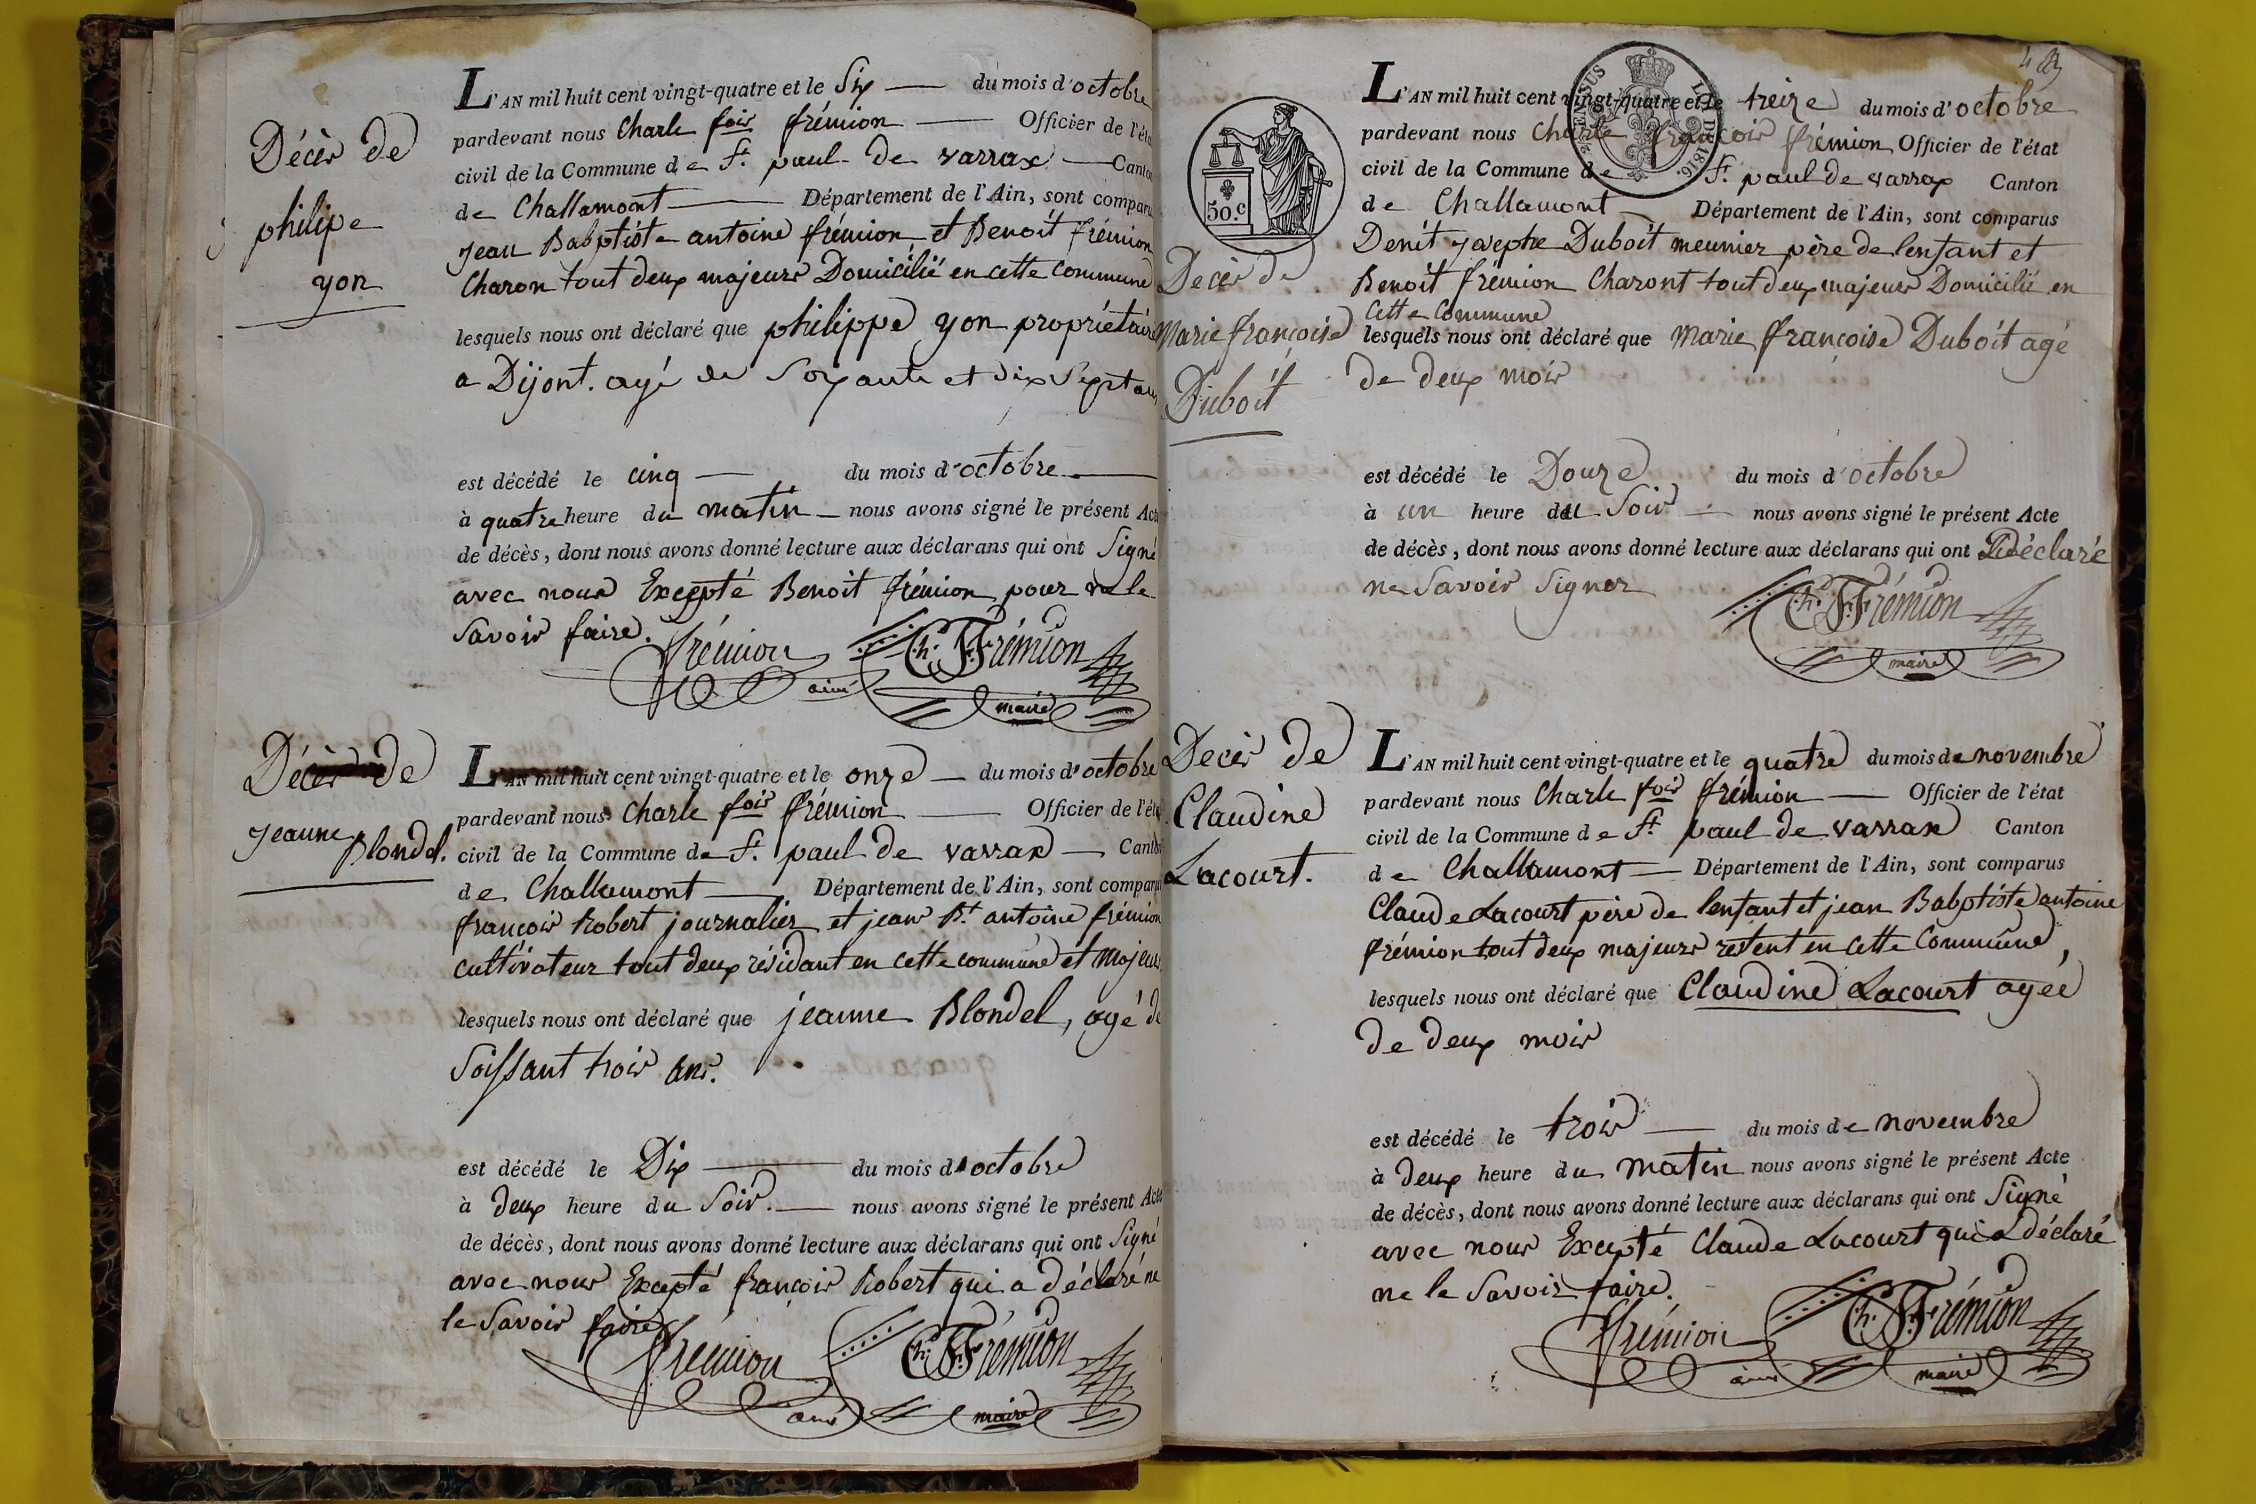 Décès de
philipe
yon
L'AN mil huit cent vingt-quatre et le Six — du mois d'octobre
pardevant nous Charle fois frémion — Officier de l'éta
civil de la Commune de St. paul de varrax — Canton
de Challamont — Département de l'Ain, sont comparu
jean Babptiste antoine frémion et Benoit frémion
Charon tout deux majeurs Domicilié en cette commune
lesquels nous ont déclaré que philippe yon propriétaire
a Dijont. agé de Soixante et dix Sept ans
est décédé le cinq — du mois d'octobre —
à quatre heure du matin — nous avons signé le présent Acte
de décès, dont nous avons donné lecture aux déclarans qui ont Signé
avec nous Excepté Benoit frémion pour ne le
Savoir faire.
frémion
ainé
Ch. F. Frémion
maire
Décès de
jeanne
Blondel.
L'AN mil huit cent vingt-quatre et le onze — du mois d'octobre
pardevant nous Charle fois frémion — Officier de l'éta
civil de la Commune de St. paul de varrax — Canton
de Challamont — Département de l'Ain, sont comparu
françois Robert journalier et jean Bt antoine frémion
cultivateur tout deux résidant en cette commune et Majeurs
lesquels nous ont déclaré que jeanne Blondel, agé de
Soissant trois ans.
est décédé le Dix — du mois d'octobre
à deux heure du Soir. — nous avons signé le présent Acte
de décès, dont nous avons donné lecture aux déclarans qui ont Signé
avec nous Excepté françois Robert qui a déclaré ne
le Savoir faire
frémion
ainé
Ch. F. Frémion
maire
50.c
L'AN mil huit cent vingt-quatre et le treize du mois d'octobre
pardevant nous Charle françois frémion Officier de l'état
civil de la Commune de St. paul de varrax Canton
de Challamont — Département de l'Ain, sont comparus
Denit josephe Duboit meunier père de lenfant et
Benoit frémion Charont tout deux majeurs Domicilié en
Cette Commune
Decès de
Marie françoise
Duboit
lesquels nous ont déclaré que Marie françoise Duboit agé
de deux mois
est décédé le Douze du mois d'octobre
à un heure du Soir — nous avons signé le présent Acte
de décès, dont nous avons donné lecture aux déclarans qui ont déclaré
ne Savoir Signer
Ch. F. Frémion
maire
Decès de
Claudine
Lacourt.
L'AN mil huit cent vingt-quatre et le quatre du mois de novembre
pardevant nous Charle fois frémion — Officier de l'état
civil de la Commune de St. paul de varrax Canton
de Challamont — Département de l'Ain, sont comparus
Claude Lacourt père de lenfant et jean Babptiste antoine
frémion tout deux majeurs restent en cette Commune,
lesquels nous ont déclaré que Claudine Lacourt agée
de deux mois
est décédé le trois — du mois de novembre
à deux heure du matin nous avons signé le présent Acte
de décès, dont nous avons donné lecture aux déclarans qui ont Signé
avec nous Excepté Claude Lacourt qui a déclaré
ne le Savoir faire.
frémion
ainé
Ch. F. Frémion
maire